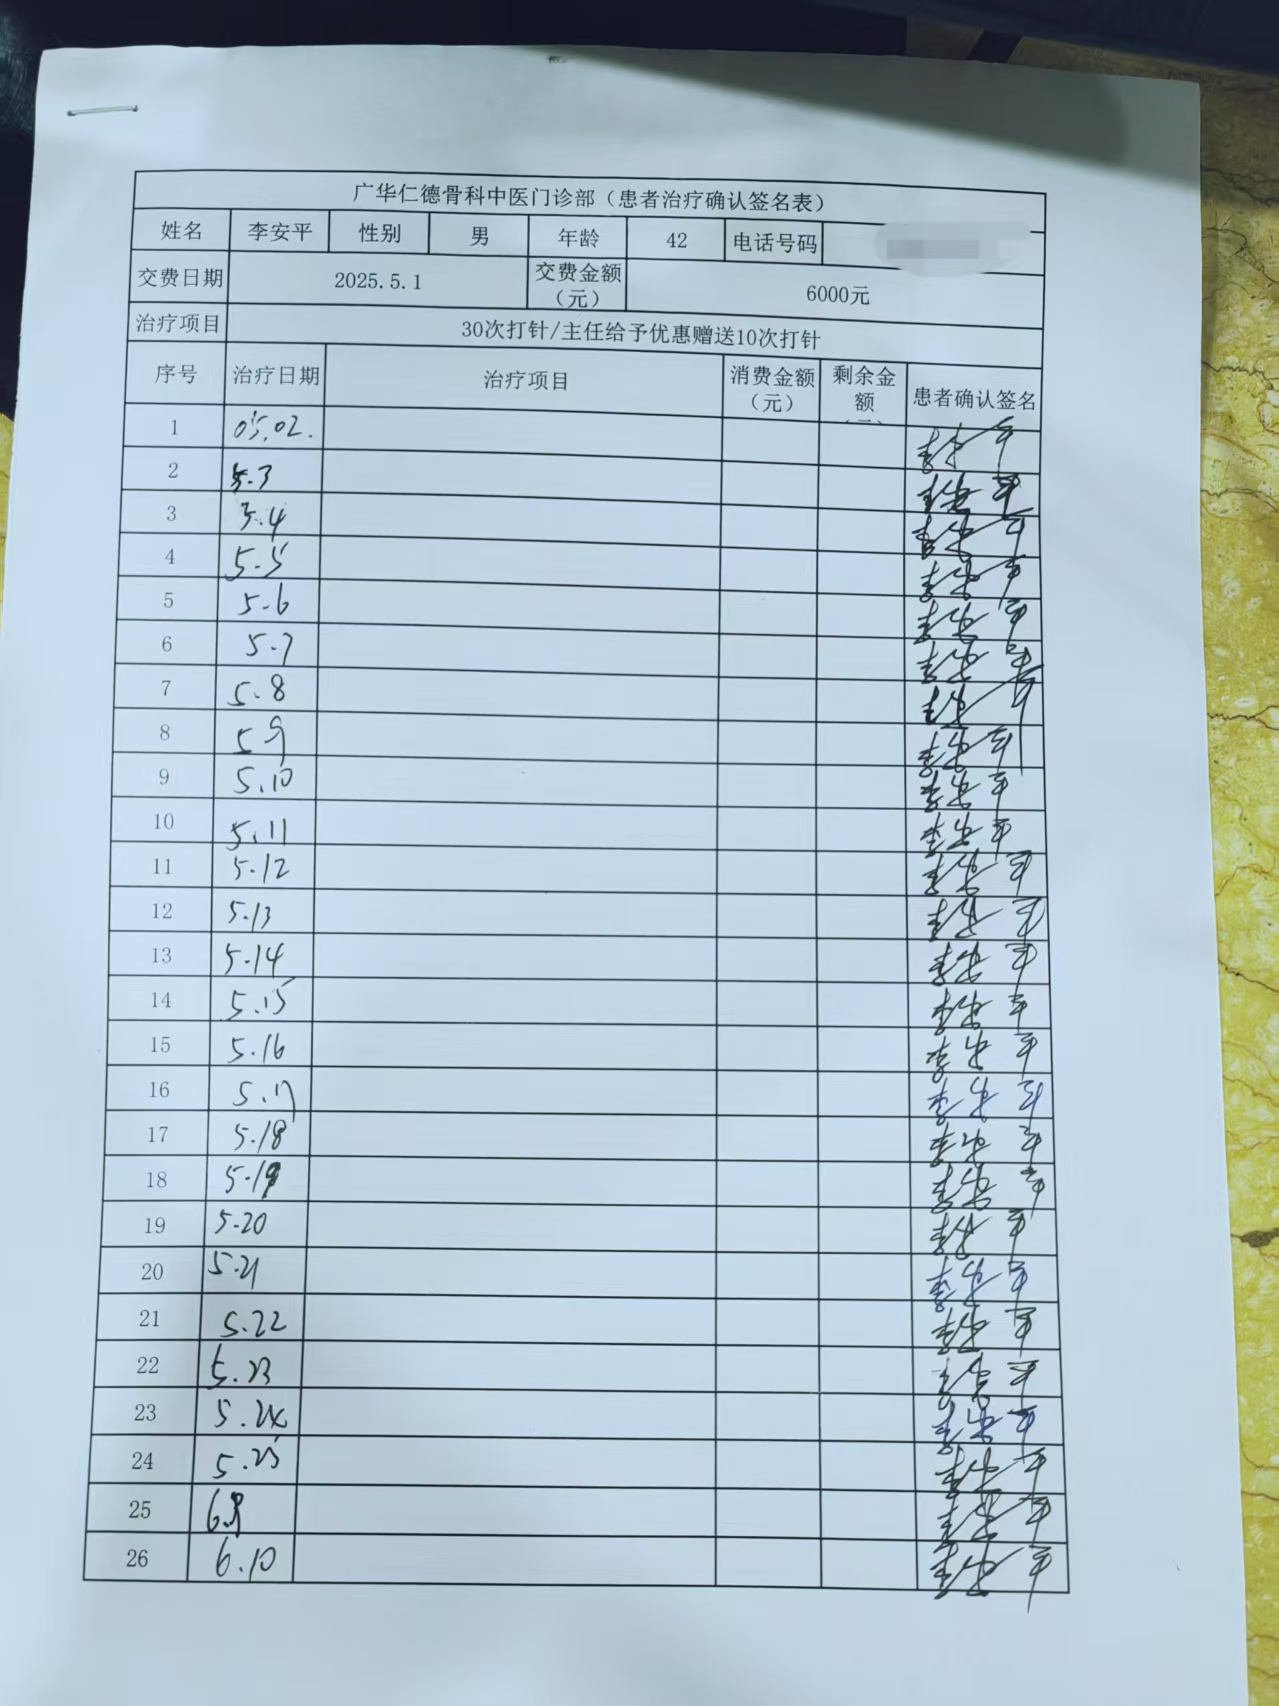 广华仁德骨科中医门诊部（患者治疗确认签名表）
姓名 李安平 性别 男 年龄 42 电话号码
交费日期 2025.5.1 交费金额（元） 6000元
治疗项目 30次打针/主任给予优惠赠送10次打针
序号 治疗日期 治疗项目 消费金额（元） 剩余金额 患者确认签名
1 05.02. 李安平
2 5.3 李安平
3 5.4 李安平
4 5.5 李安平
5 5.6 李安平
6 5.7 李安平
7 5.8 李安平
8 5.9 李安平
9 5.10 李安平
10 5.11 李安平
11 5.12 李安平
12 5.13 李安平
13 5.14 李安平
14 5.15 李安平
15 5.16 李安平
16 5.17 李安平
17 5.18 李安平
18 5.19 李安平
19 5.20 李安平
20 5.21 李安平
21 5.22 李安平
22 5.23 李安平
23 5.24 李安平
24 5.25 李安平
25 6.9 李安平
26 6.10 李安平